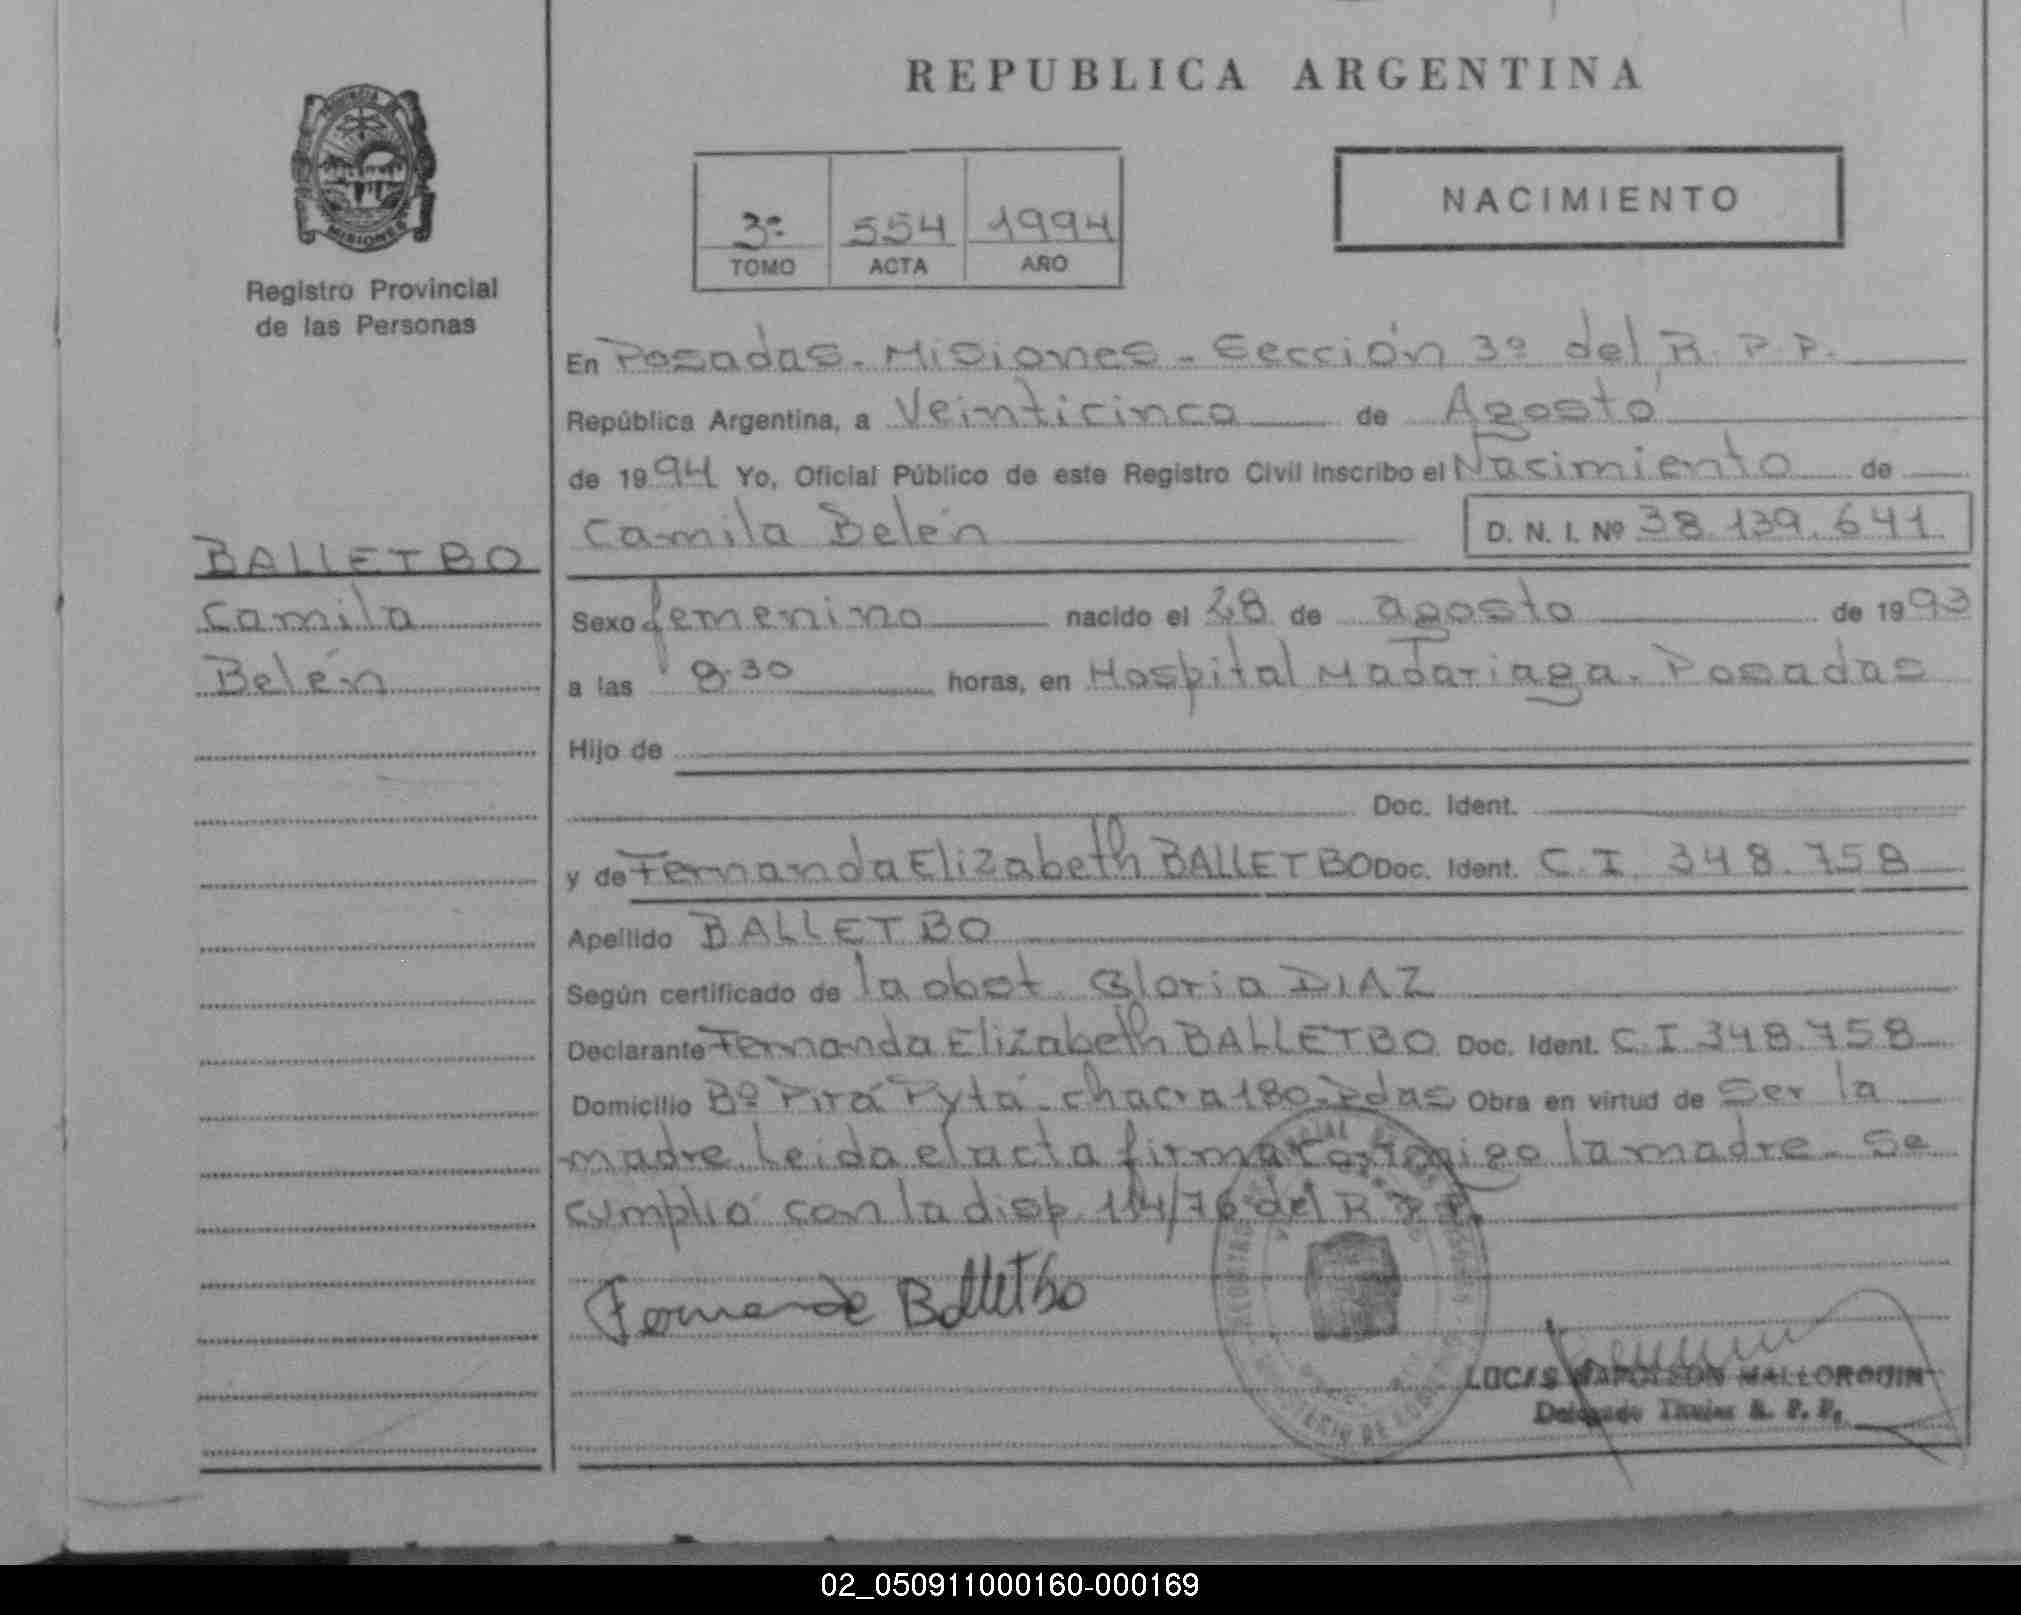 REPUBLICA ARGENTINA
PROVINCIA DE
MISIONES
Registro Provincial
de las Personas
3º 554 1994
TOMO ACTA AÑO
NACIMIENTO
En Posadas - Misiones - Sección 3º del R. P. P.
República Argentina, a Veinticinco de Agosto
de 1994 Yo, Oficial Público de este Registro Civil inscribo el Nacimiento de
Camila Belén D. N. I. Nº 38.139.641
BALLETBO
Camila
Belén
Sexo femenino nacido el 28 de agosto de 1993
a las 8.30 horas, en Hospital Madariaga. Posadas
Hijo de
Doc. Ident.
y de Fernanda Elizabeth BALLETBO Doc. Ident. C.I. 348.758
Apellido BALLETBO
Según certificado de la obst. Gloria DIAZ
Declarante Fernanda Elizabeth BALLETBO Doc. Ident. C.I 348.758
Domicilio Bº Pirá Pytá - chacra 180. Pdas Obra en virtud de Ser la
madre. Leida el acta firma conmigo la madre. Se
cumplió con la disp. 114/76 del R. P. P.
Fernanda Balletbo
LUCAS NAPOLEON MALLORQUIN
Delegado Titular R. P. P.
02_050911000160-000169